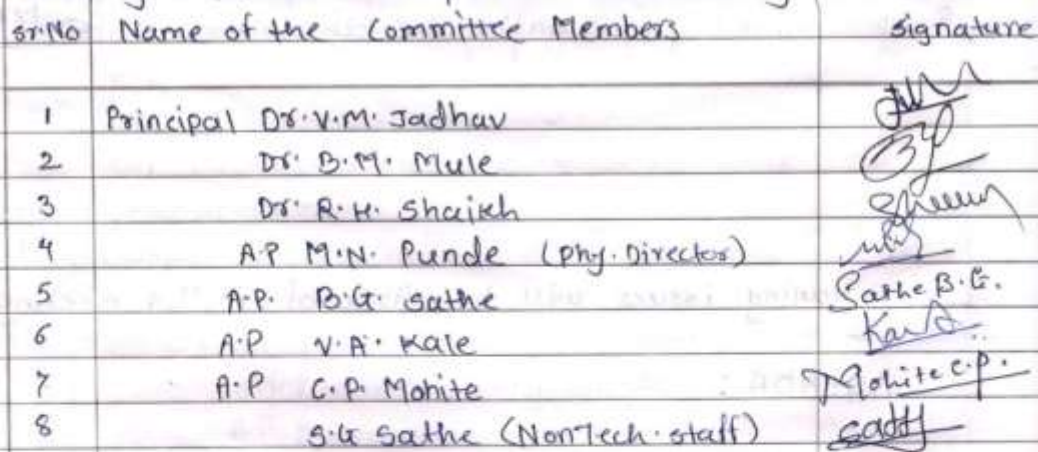 Sr.No Name of the Committee Members Signature
1 Principal Dr.V.M. Jadhav
2 Dr. B.M. Mule
3 Dr. R.H. Shaikh
4 A.P M.N. Punde (Phy. Director)
5 A.P. B.G. Sathe Sathe B.G.
6 A.P V.A. Kale
7 A.P C.P. Mohite Mohite C.P.
8 S.G Sathe (NonTech. staff)